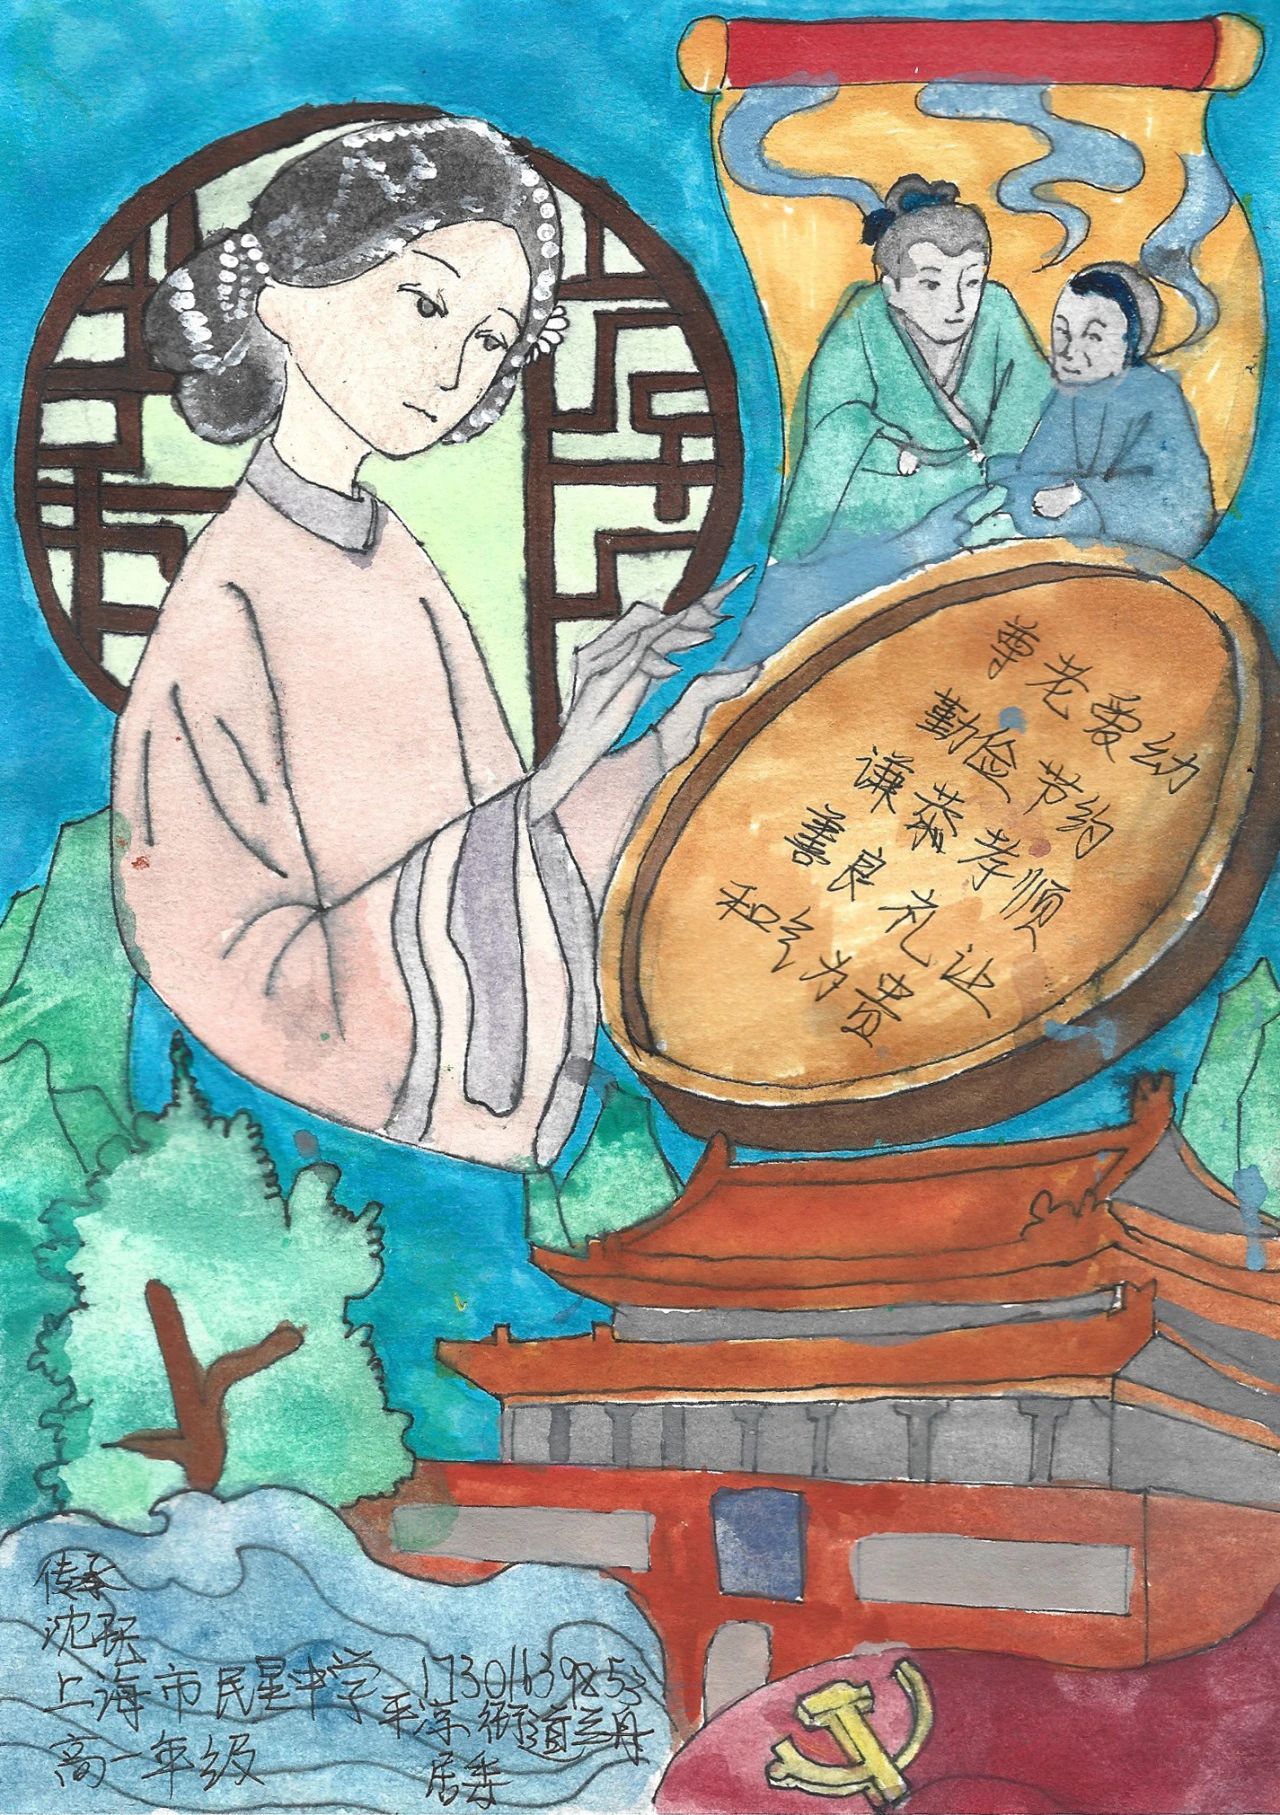 尊老爱幼
勤俭节约
谦恭孝顺
善良礼让
和气为贵
传承
上海市民星中学
高一年级
17301639853
平凉街道
居委